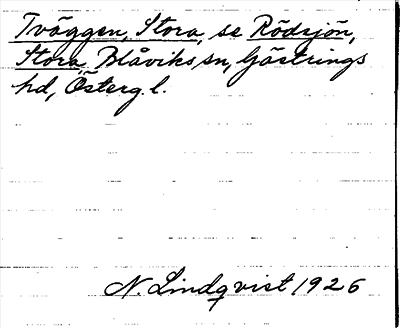 Tväggen, Stora, se Rödsjön,
Stora, Blåviks sn, Göstrings
hd, Österg. l.
N. Lindqvist 1926